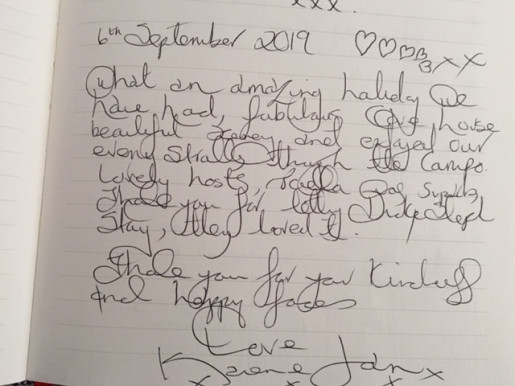 xxx.
6th September 2019 ♡♡♡ xx
What an amazing holiday we
have had, fabulous Cave house
beautiful and enjoyed our
evening Strolls through the Campo.
Lovely hosts, was
Thank you for letting
Stay, they loved it.
Thank you for your Kindness
and happy faces
Love
x x x